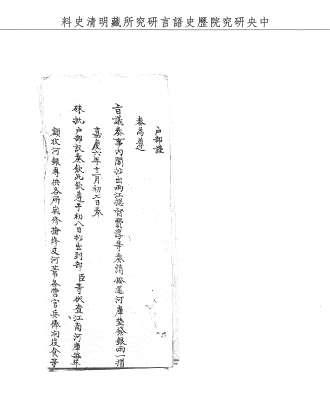 中央研究院歷史語言研究所藏明清史料
戶部謹
奏為遵
旨議奏事內閣抄出兩江總督費淳等奏請撥還河庫墊發銀兩一摺
嘉慶六年十二月初七日奉
硃批戶部議奏欽此欽遵于初八日抄出到部臣等伏查江南河庫每年
額收河銀專供各所歲修搶修及河營各營官兵俸餉役食等